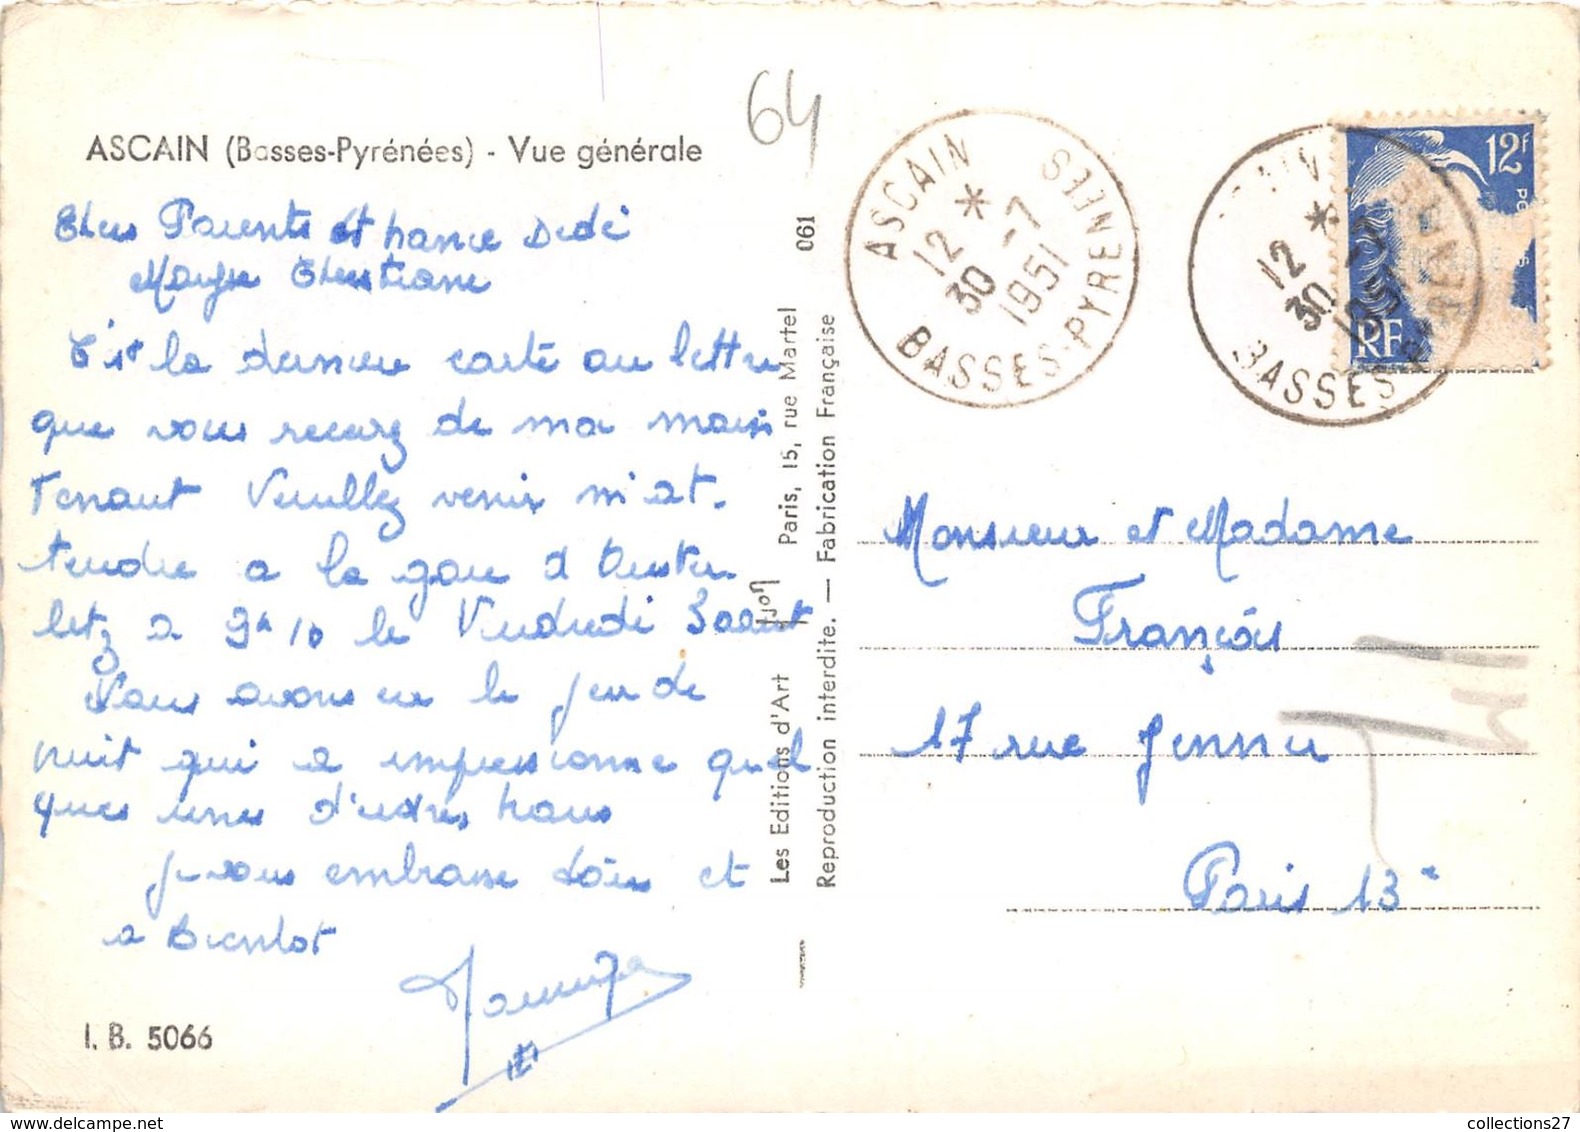 ASCAIN (Basses-Pyrénées) - Vue générale
64
Chers Parents et France Dedé
Christiane
C'est la derniere carte ou lettre
que vous recevez de moi main
Tenant Veuillez venir m'at-
tendre a la gare d'Auster
litz a 9h10 le Vendredi 3 aout
Nous avons eu le feu de
nuit qui a impressionné quel
ques unes d'entres nous
Je vous embrasse tous et
a Bientot
I. B. 5066
Les Editions d'Art yvon Paris, 15, rue Martel 061
Reproduction interdite. — Fabrication Française
ASCAIN
12 *
30 -7
1951
BASSES-PYRENEES
12
*
30 -7
1951
BASSES-PYRENEES
12F
RF
Monsieur et Madame
François
17 rue Jenner
Paris 13e
collections27